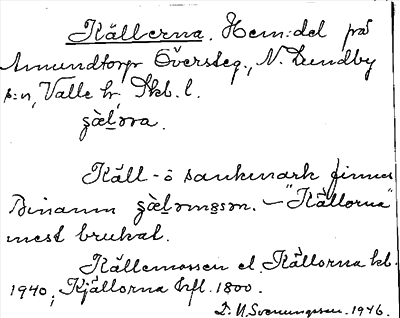 Källerna. Hem:del på
Amundtorp Översteg., N. Lundby
s:n, Valle hd, Skb. l.
Käll- o sankmark finnes
Binamn "Källorna"
mest brukat.
Källemossen el. Källorna kb.
1940, Kjällorna hfl. 1800.
D. N. Svenungsson. 1946.